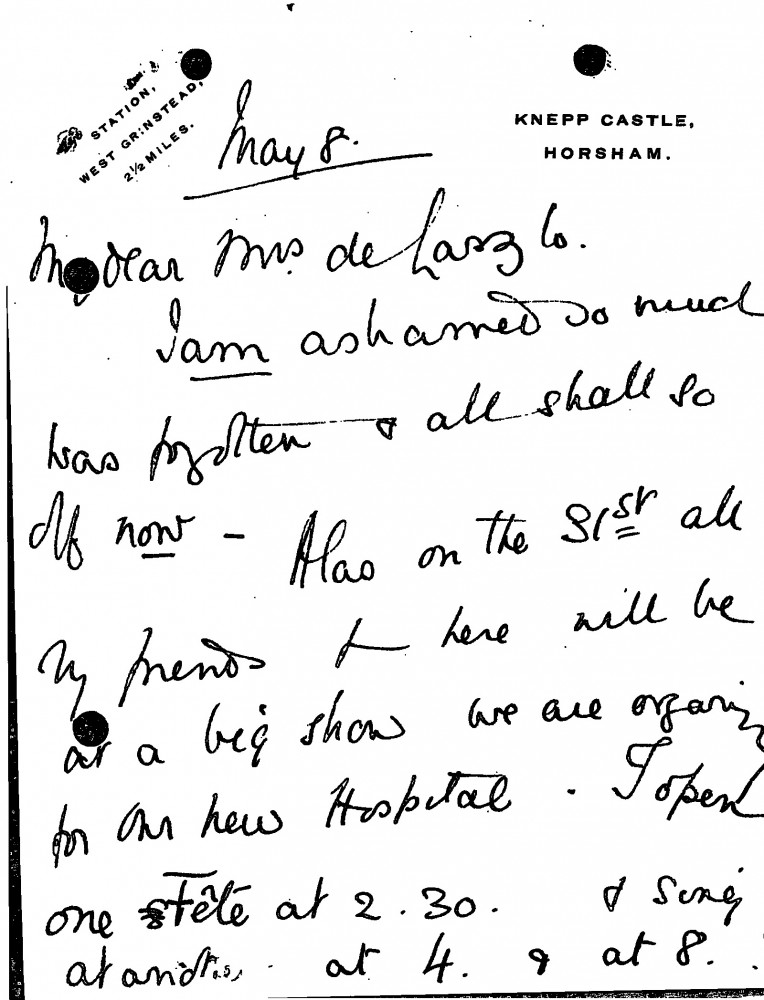 STATION,
WEST GRINSTEAD,
2½ MILES.
KNEPP CASTLE,
HORSHAM.
May 8.
My dear Mrs. de Laszlo.
I am ashamed so much
was forgotten & all shall go
off now - Also on the 31st all
my friends here will be
at a big show we are organiz
for our new Hospital. I open
one Fête at 2.30. & sing
at at 4. & at 8.